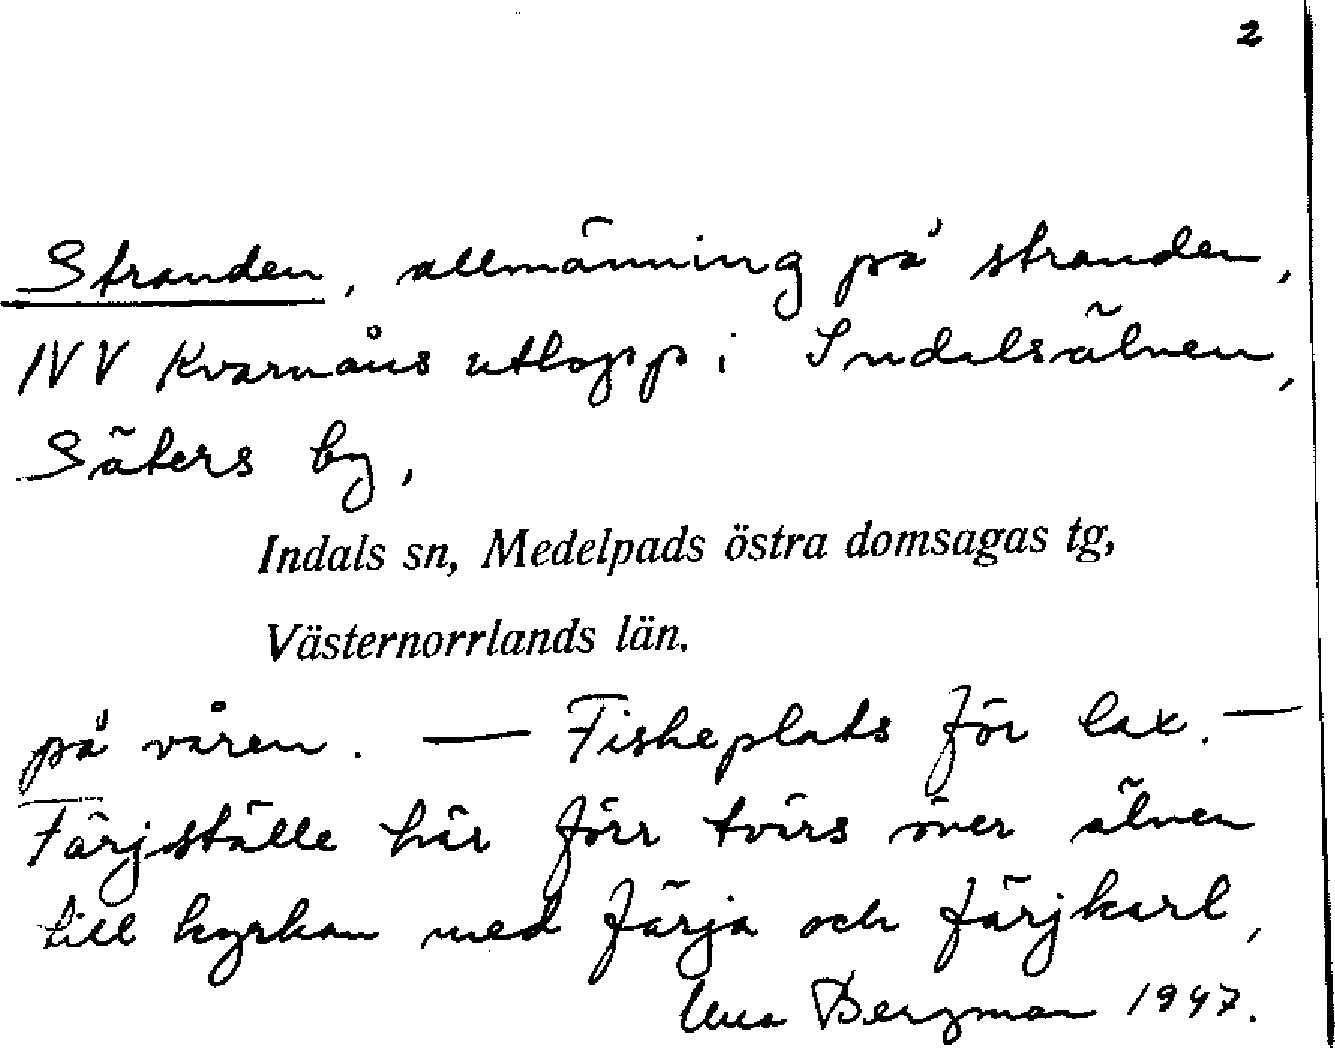 2
Stranden, allmänning på stranden,
NV Kvarnåns utlopp i Indalsälven,
Säters by,
Indals sn, Medelpads östra domsagas tg,
Västernorrlands län.
på våren. — Fiskeplats för lax. —
Färjställe här förr tvärs över älven
till kyrkan med färja och färjkarl,
Bergman 1947.